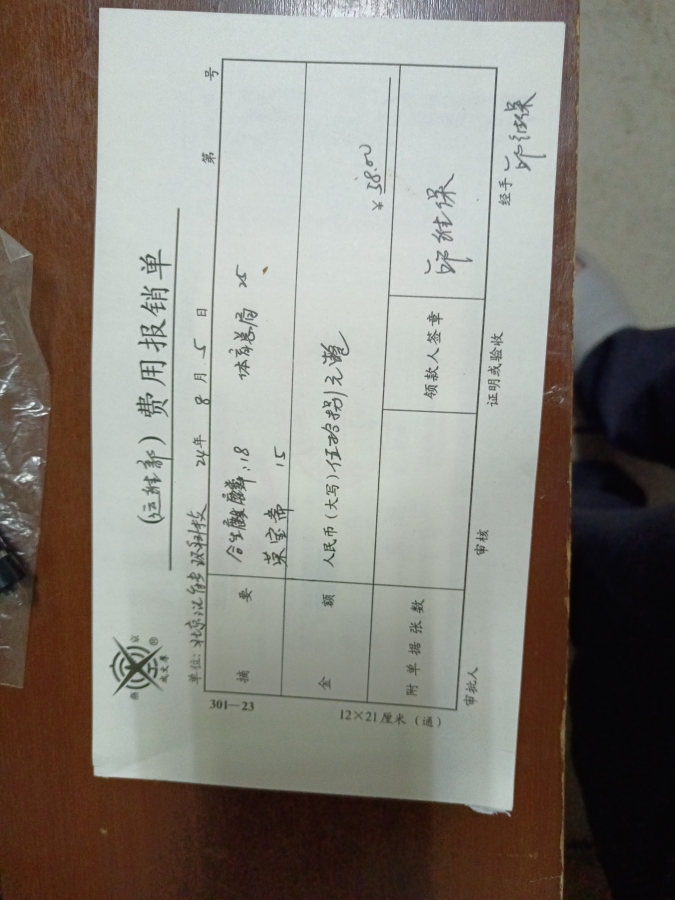 (运维部)费用报销单
第 号
24年 8月 5日
单位:北京
摘要
合生麒麟:18 体育总局 25
荣宝斋 15
金额
人民币(大写)伍拾捌元整
¥58.00
附单据张数
领款人签章
邱维保
审批人 审核 证明或验收 经手 邱维保
301—23
12×21厘米(通)